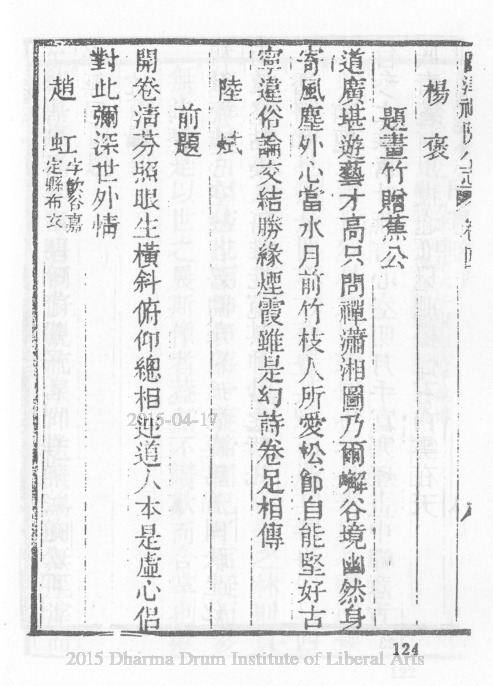 津禪院公志畧卷四
楊褒
題畫竹贈蕉公
道廣堪遊藝才高只問禪瀟湘圖乃爾嶰谷境幽然身
寄風塵外心當水月前竹枝人所愛松節自能堅好古
寧違俗論交結勝緣煙霞雖是幻詩卷足相傳
陸斌
前題
開卷淸芬照眼生橫斜俯仰總相迎道人本是虛心侶
對此彌深世外情
趙虹字飲谷嘉
定縣布衣
八
124
2015-04-17
2015 Dharma Drum Institute of Liberal Arts